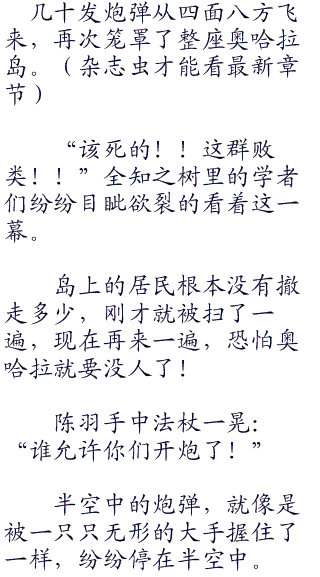 几十发炮弹从四面八方飞
来，再次笼罩了整座奥哈拉
岛。（杂志虫才能看最新章
节）
“该死的！！这群败
类！！”全知之树里的学者
们纷纷目眦欲裂的看着这一
幕。
岛上的居民根本没有撤
走多少，刚才就被扫了一
遍，现在再来一遍，恐怕奥
哈拉就要没人了！
陈羽手中法杖一晃：
“谁允许你们开炮了！”
半空中的炮弹，就像是
被一只只无形的大手握住了
一样，纷纷停在半空中。